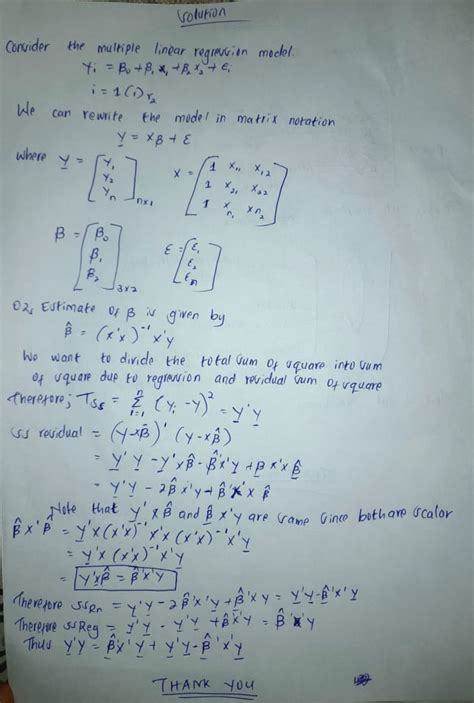 Solution
Consider the multiple linear regression model.
Yi = β0 + β1 x1 + β2 x2 + εi
i = 1(1)r2
We can rewrite the model in matrix notation
Y = Xβ + ε
where Y = [Y1 Y2 Yn] nx1 X = (1 x11 x12 1 x21 x22 1 xn1 xn2)
β = [β0 β1 β2] 3x2 ε = [ε1 ε2 εn]
O2s Estimate of β is given by
β̂ = (x'x)⁻¹ x'y
We want to divide the total sum of square into sum
of square due to regression and residual sum of square
Therefore; TSs = Σ i=1 n (yi - y)² = Y'Y
SS residual = (Y - xβ̂)' (Y - xβ̂)
= Y'Y - Y'xβ̂ - β̂'x'Y + β x'x β̂
= Y'Y - 2β̂x'Y + β̂'x'x β̂
Note that Y'xβ̂ and β̂x'Y are same since both are scalor
β̂x'β = Y'x(x'x)⁻¹ x'x (x'x)⁻¹ x'Y
= Y'x (x'x)⁻¹ x'Y
= Y'xβ̂ = β̂'x'Y
Therefore SSRn = Y'Y - 2β̂'x'Y + β̂'xY = Y'Y - β̂'x'Y
Therefore SSReg = Y'Y - Y'Y + β̂'x'Y = β̂'x'Y
Thus Y'Y = β̂x'Y + Y'Y - β̂'x'Y
THANK YOU